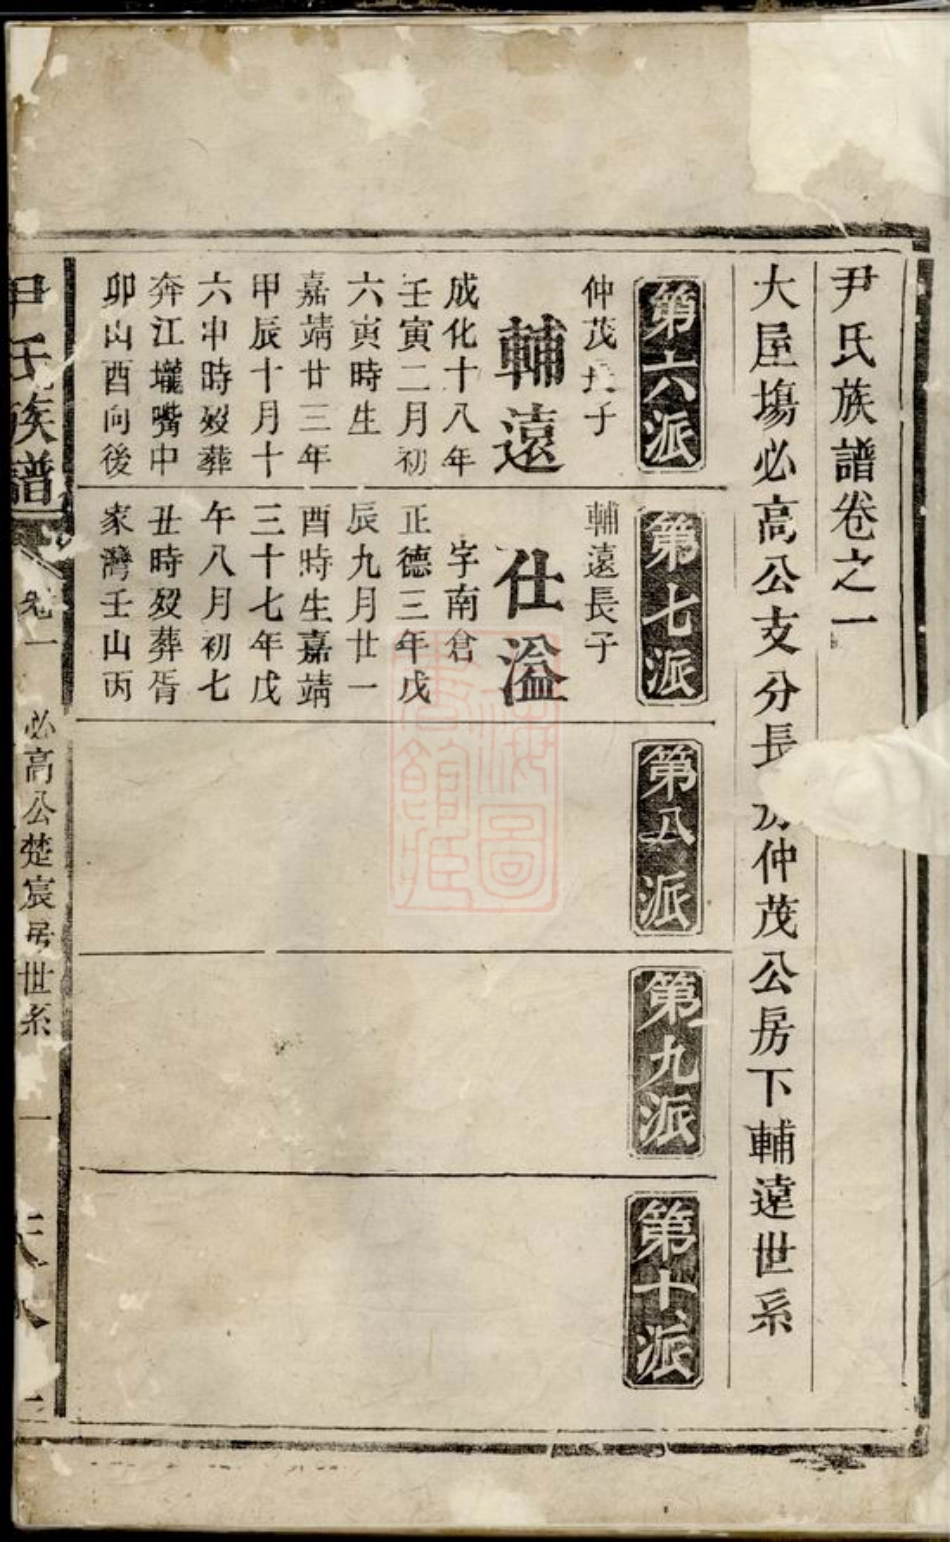 尹氏族譜卷之一
大屋塲必高公支分長房仲茂公房下輔遠世系
第六派
仲茂長子
輔遠
成化十八年
壬寅二月初
六寅時生
嘉靖廿三年
甲辰十月十
六申時歿葬
奔江壠嘴中
卯山酉向後
第七派
輔遠長子
仕溢
字南倉
正德三年戊
辰九月廿一
酉時生嘉靖
三十七年戊
午八月初七
丑時歿葬胥
家灣壬山丙
第八派
第九派
第十派
尹氏族譜
卷一
必高公楚宸房世系
一